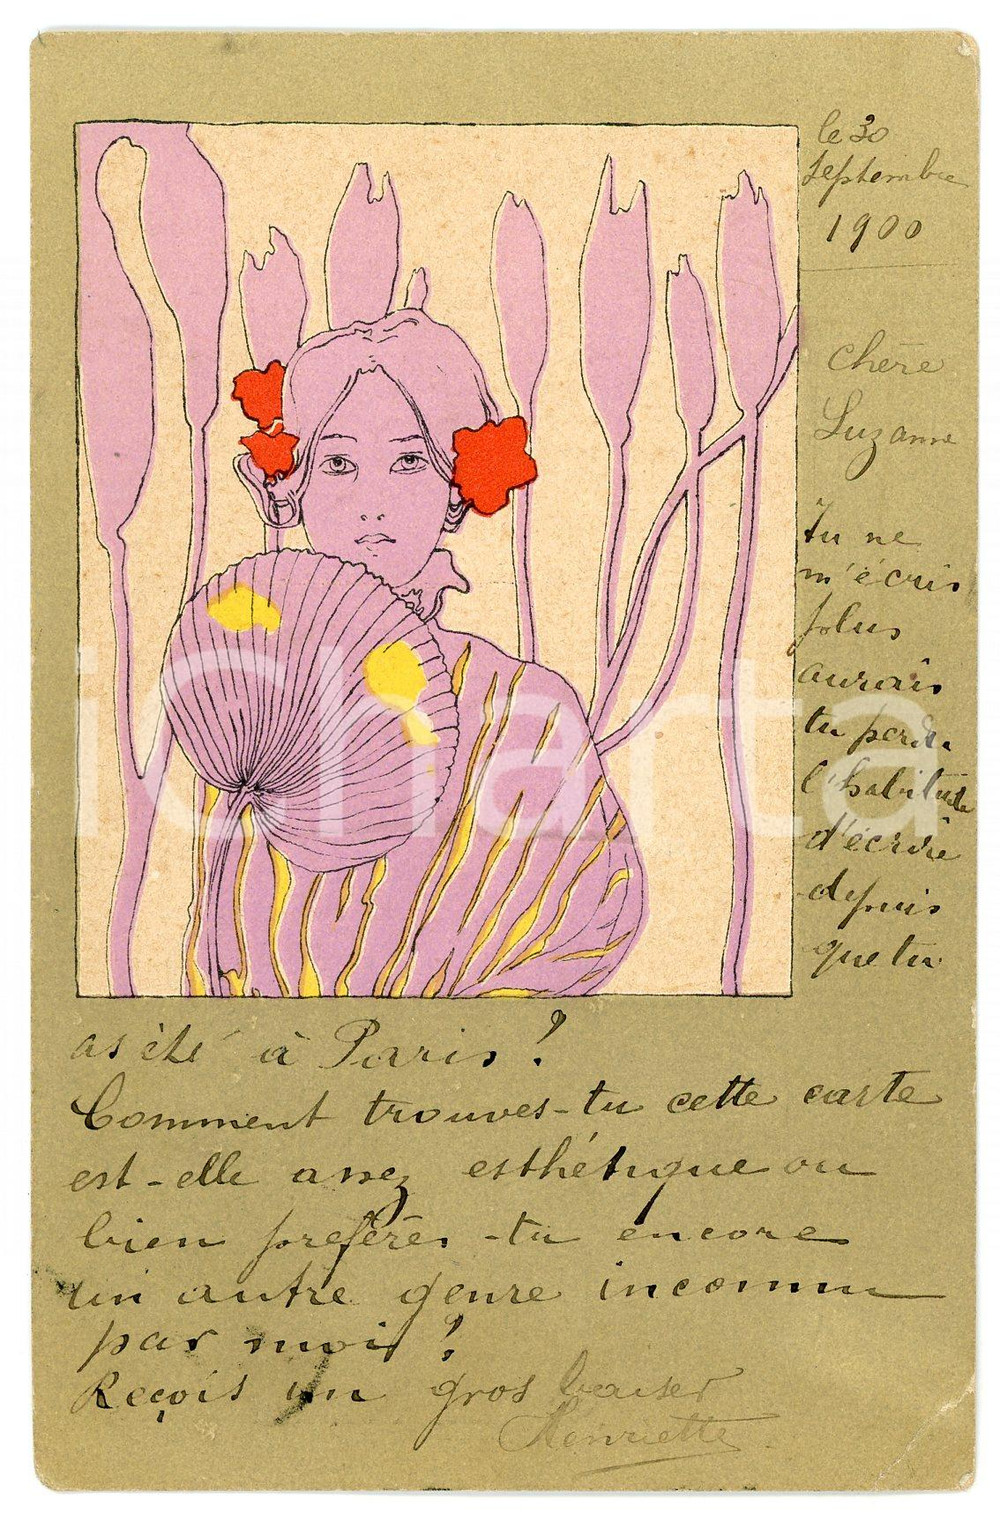 le 30
septembre
1900
Chère
Suzanne
Tu ne
m'écris
plus
aurais
tu perdu
l'habitude
d'écrire
depuis
que tu
as été à Paris ?
Comment trouves-tu cette carte
est-elle assez esthétique ou
bien préfères-tu encore
un autre genre inconnu
par moi ?
Reçois un gros baiser
Henriette
iCharta